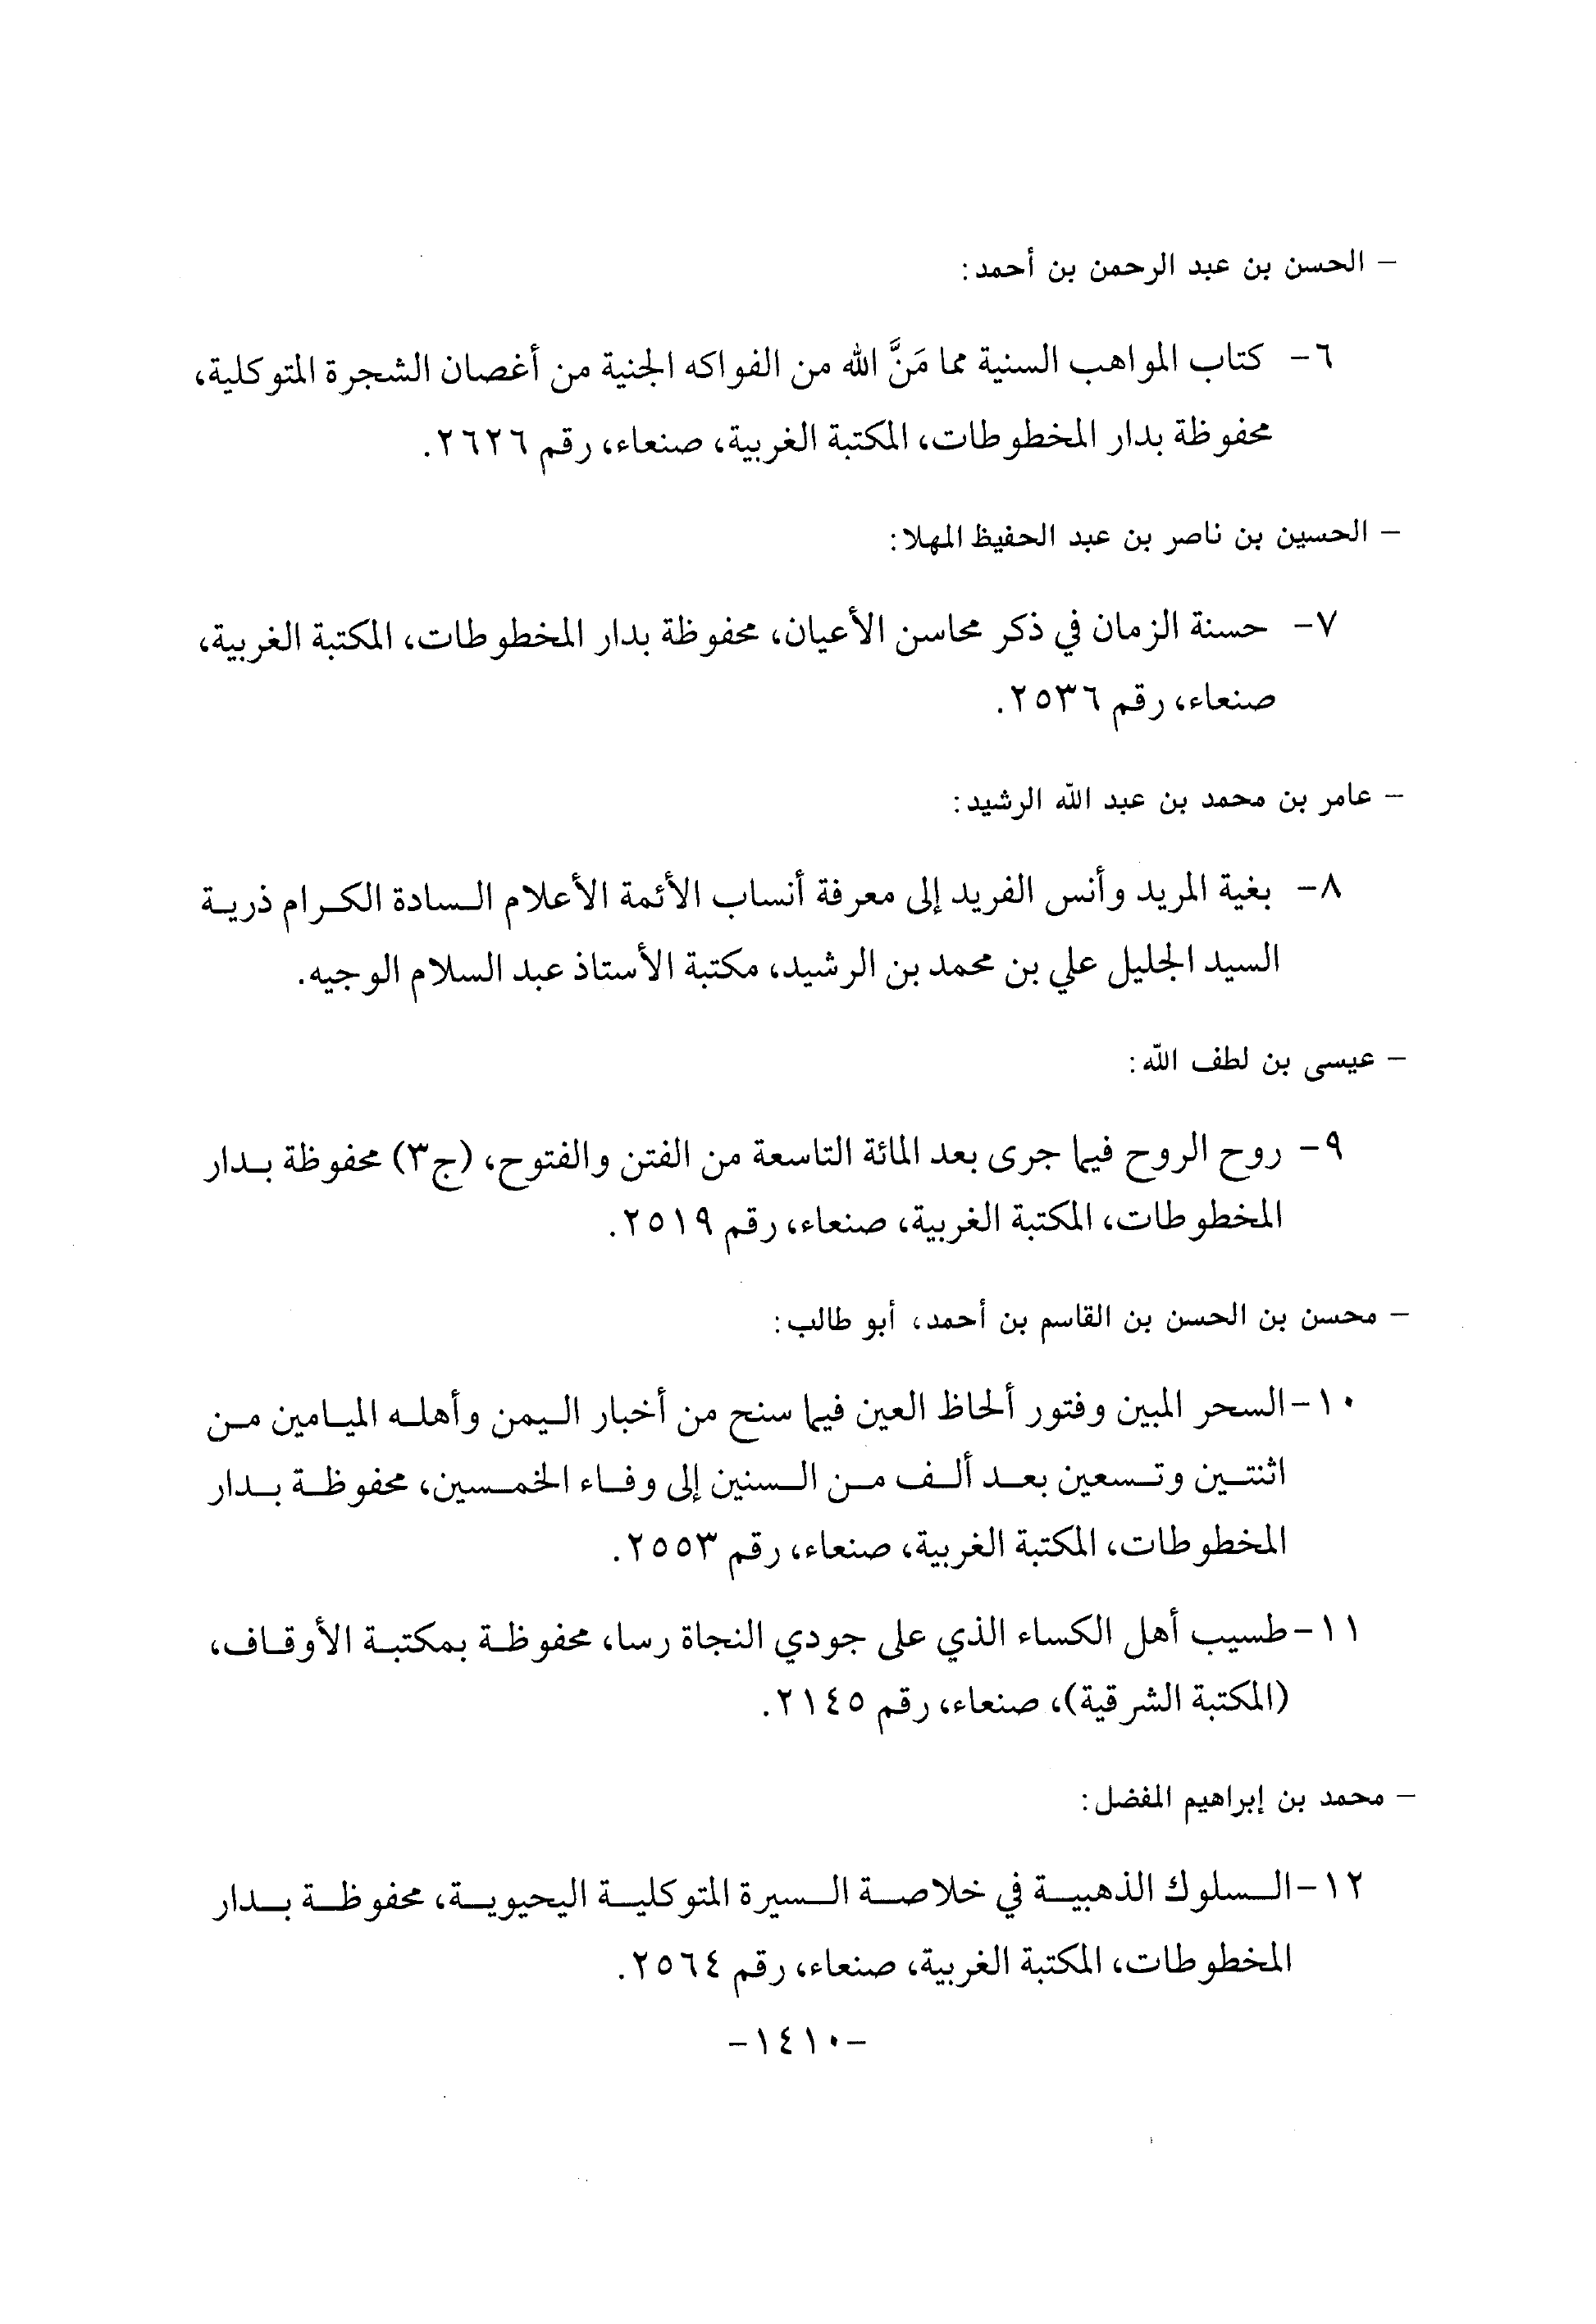 – الحسن بن عبد الرحمن بن أحمد:
٦- كتاب المواهب السنية مما مَنَّ الله من الفواكه الجنية من أغصان الشجرة المتوكلية،
محفوظة بدار المخطوطات، المكتبة الغربية، صنعاء، رقم ٢٦٢٦.
– الحسين بن ناصر بن عبد الحفيظ المهلا:
٧- حسنة الزمان في ذكر محاسن الأعيان، محفوظة بدار المخطوطات، المكتبة الغربية،
صنعاء، رقم ٢٥٣٦.
– عامر بن محمد بن عبد الله الرشيد:
٨- بغية المريد وأنس الفريد إلى معرفة أنساب الأئمة الأعلام السادة الكرام ذرية
السيد الجليل علي بن محمد بن الرشيد، مكتبة الأستاذ عبد السلام الوجيه.
– عيسى بن لطف الله:
٩- روح الروح فيما جرى بعد المائة التاسعة من الفتن والفتوح، (ج٣) محفوظة بدار
المخطوطات، المكتبة الغربية، صنعاء، رقم ٢٥١٩.
– محسن بن الحسن بن القاسم بن أحمد، أبو طالب:
١٠- السحر المبين وفتور ألحاظ العين فيما سنح من أخبار اليمن وأهله الميامين من
اثنتين وتسعين بعد ألف من السنين إلى وفاء الخمسين، محفوظة بدار
المخطوطات، المكتبة الغربية، صنعاء، رقم ٢٥٥٣.
١١- طسيب أهل الكساء الذي على جودي النجاة رسا، محفوظة بمكتبة الأوقاف،
(المكتبة الشرقية)، صنعاء، رقم ٢١٤٥.
– محمد بن إبراهيم المفضل:
١٢- السلوك الذهبية في خلاصة السيرة المتوكلية اليحيوية، محفوظة بدار
المخطوطات، المكتبة الغربية، صنعاء، رقم ٢٥٦٤.
-١٤١٠-